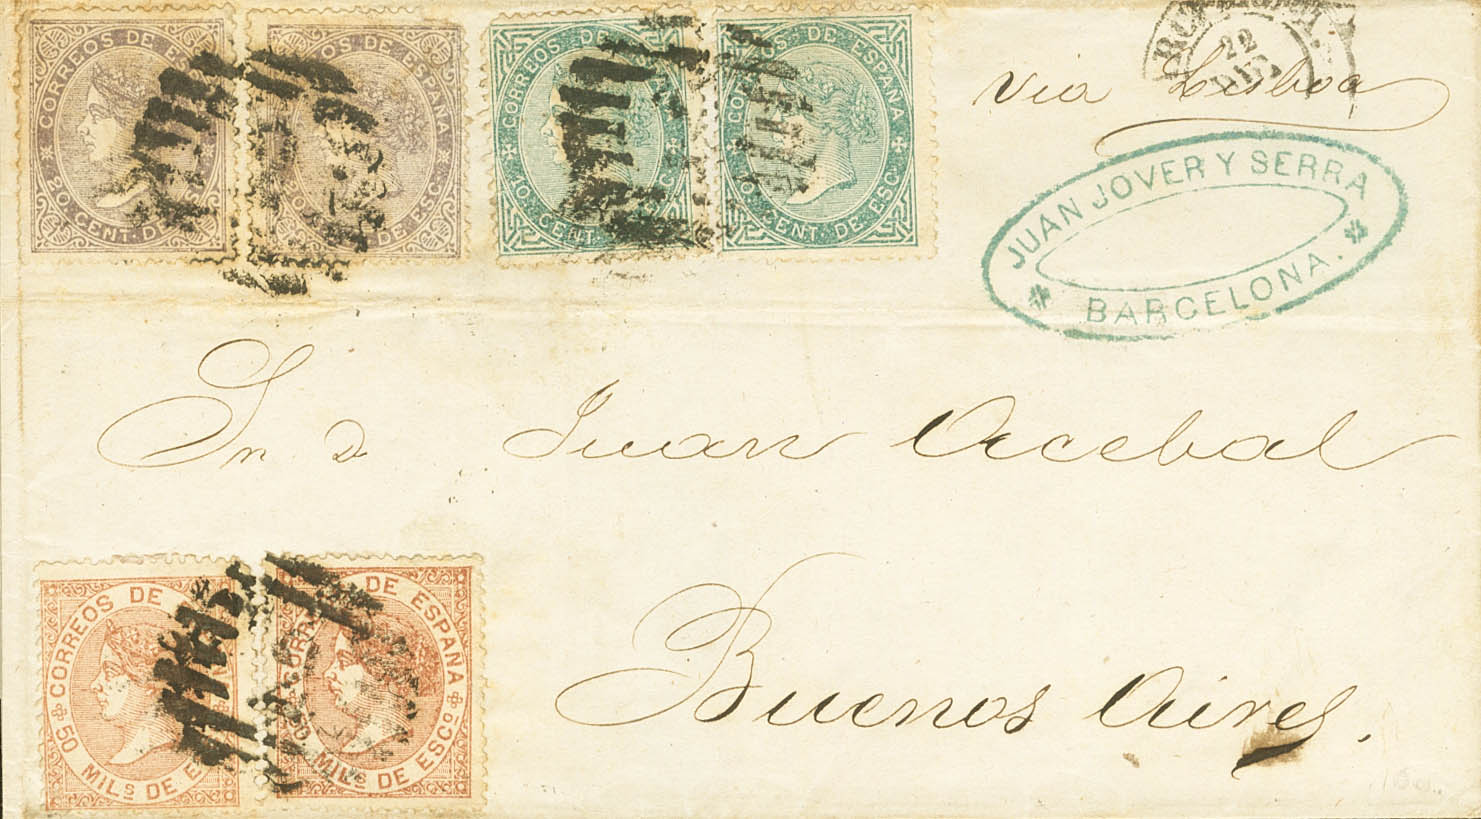 CORREOS DE ES
20 CENT. DE
OS DE ESPAÑA
DE ESC.
CORREOS DE
10 CENT.
DE ESPAÑA
CENT. DE ESC.
22
DIC
via Lisboa
JUAN JOVER Y SERRA
BARCELONA.
Sr. D. Juan Acebal
Buenos Aires.
CORREOS DE
50 MILS DE E
DE ESPAÑA
MILS DE ESCO